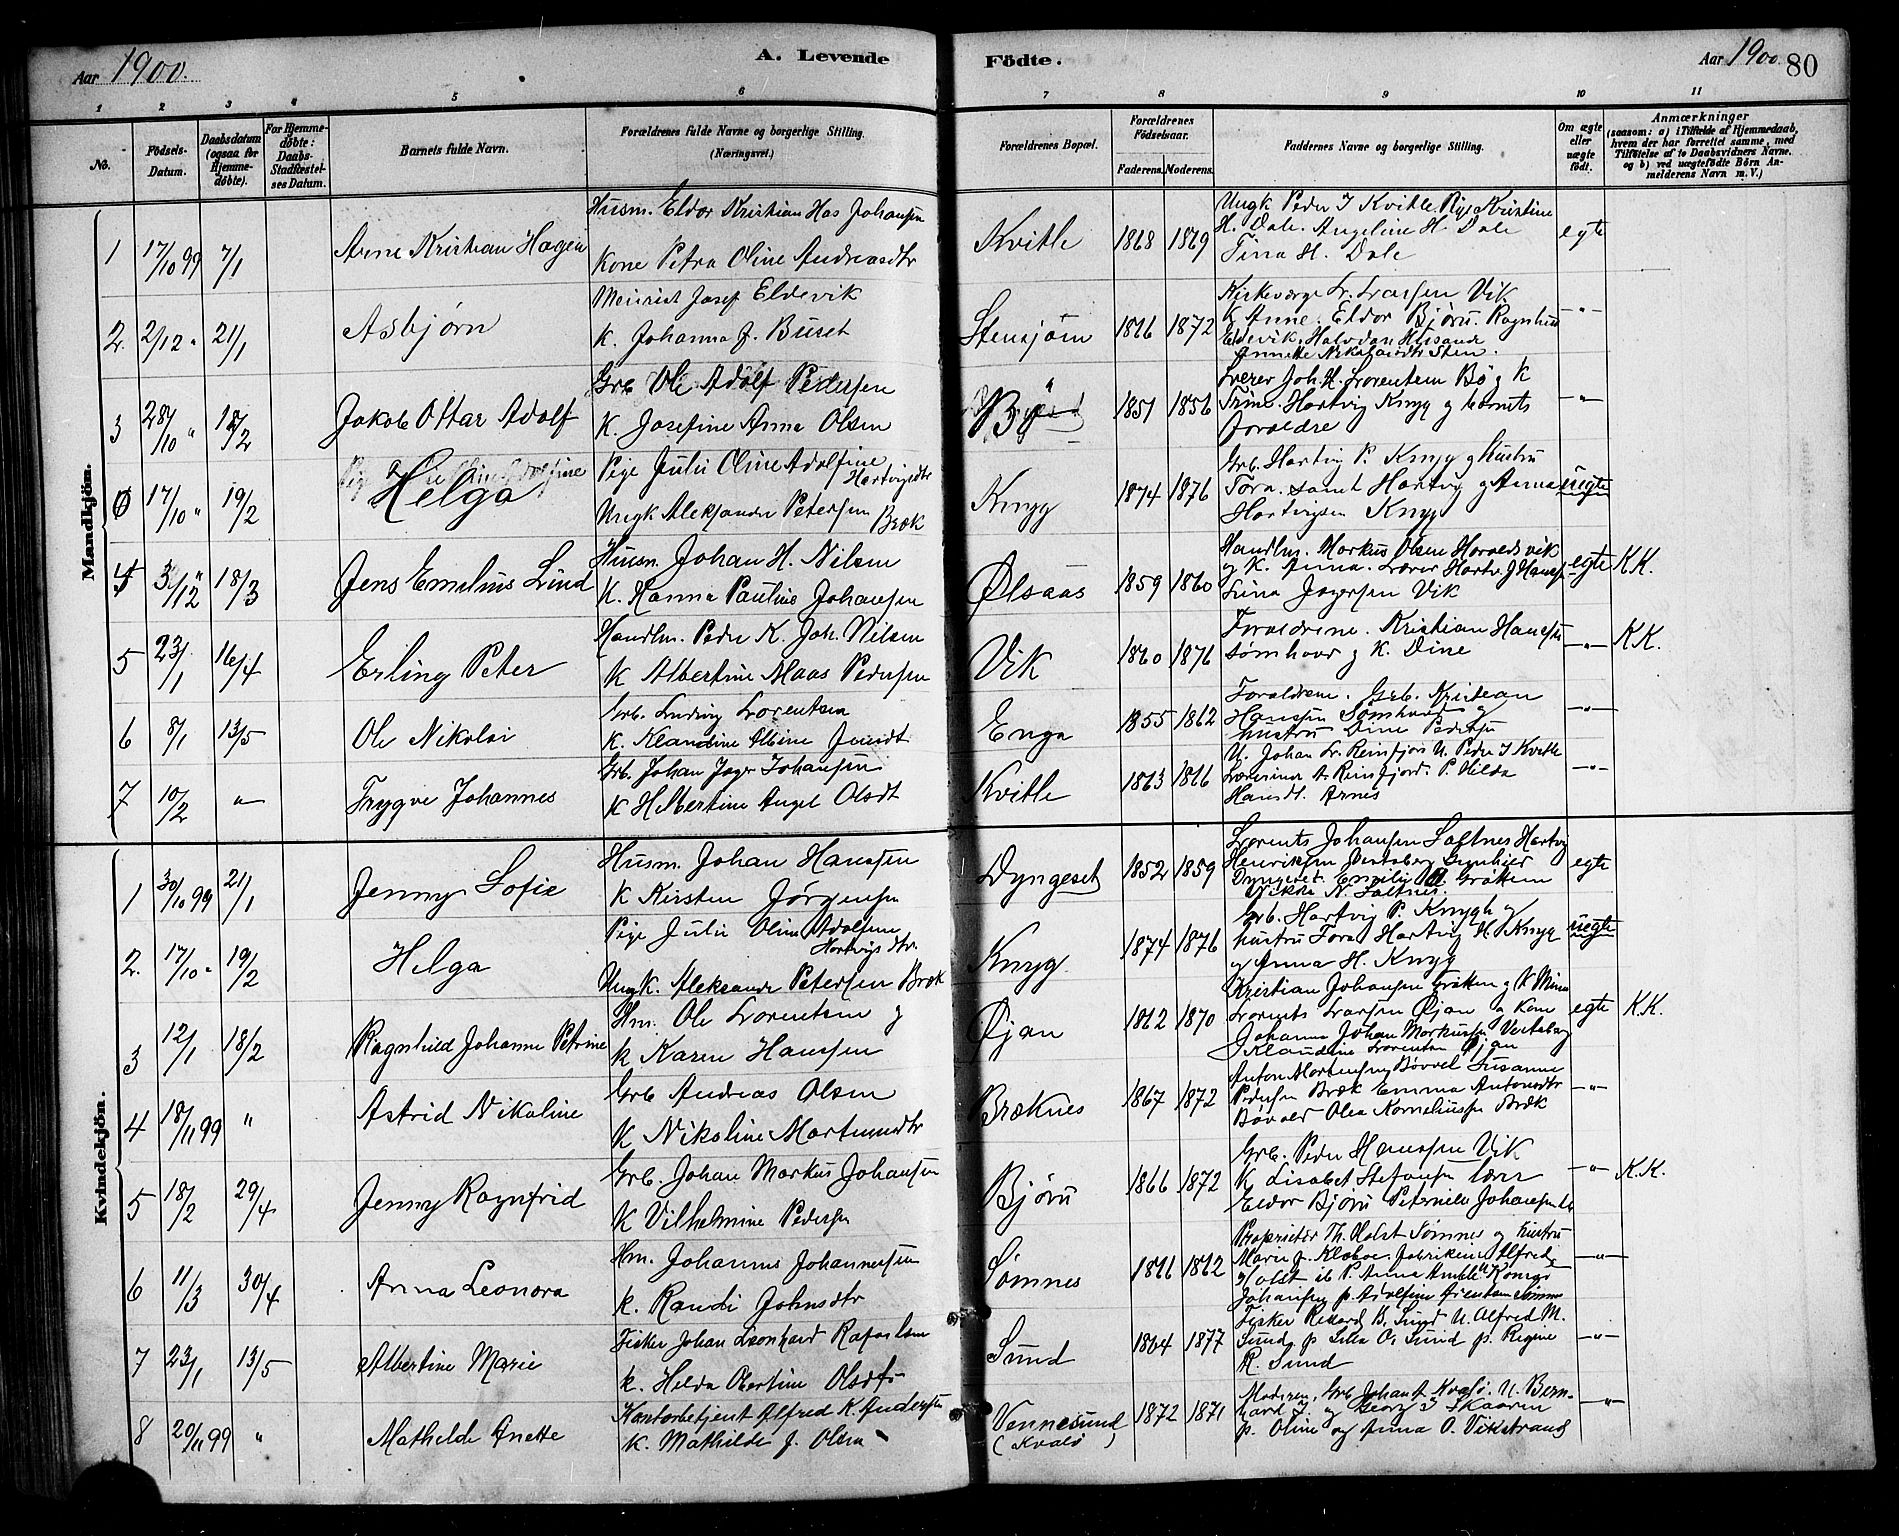 Aar 1900.
A. Levende Födte.
Aar 1900. 80
1 2 3 4 5 6 7 8 9 10 11
No.
Födsels-Datum.
Daabsdatum (ogsaa for Hjemme-döbte).
For Hjemme-döbte: Daabs-Stadfæstel-ses Datum.
Barnets fulde Navn.
Forældrenes fulde Navne og borgerlige Stilling. (Næringsvei.)
Forældrenes Bopæl.
Forældrenes Födselsaar.
Faderens. Moderens.
Faddernes Navne og borgerlige Stilling.
Om ægte eller uægte födt.
Anmærkninger
(saasom: a) i Tilfælde af Hjemmedaab, hvem der har forrettet samme, med Tilföielse af to Daabsvidners Navne, og b) ved uægtefödte Börn An-melderens Navn m. V.)
Mandkjön.
1 17/10 99 7/1 Arne Kristian Hagen
Husm. Eldor Kristian Has Johansen
Kone Petra Oline Andreasdtr
Kvitle 1868 1869
Ungk Peder J Kvitle Pige Kristine
H. Dale. Angeline H. Dale
Tina H. Dale
egte
2. 2/12 " 21/1 Asbjørn
Josef Eldevik
K. Johanna J. Buset
Stensjøen 1866 1872
Kirkeværge Lr. Larssen Vik
K Anne. Eldor Bjøru. Ragnhild
Eldevik. Halvdan
Annette Nikolaisdtr Sten.
-"-
3 28/10 " 18/2 Jakob Ottar Adolf
Grb Ole Adolf Pedersen
K. Josefine Anna Olsen
Bø 1851 1856
Lærer Joh. H. Lorentsen Bø g K
Trine. Hartvig Knyg g barnets
foraldre
-"-
0 17/10 " 19/2 Helga
Pige Julie Oline Adolfine
Hartvigsdtr
Ungk Aleksander Petersen Bræk
Knyg 1874 1876
Grb. Hartvig P. Knyg g hustru
Tora. samt Hartvig g Anna
Hartvigsen Knyg
uegte
4 3/12 " 18/3 Jens Emilius Lind
Husm. Johan H. Nilsen
K. Hanna Pauline Johansen
Ølsaas 1859 1860
Handlm. Markus Olsen Horsdsvik
g K. Anna. Lærer Hartv. J Hansen
Lina Jagersen Vik
egte K.K.
5 23/1 16/4 Erling Peter
Handlm. Peder K. Joh. Nilsen
K Albertine Maas Pedersen
Vik 1860 1876
Foraldrene. Kristian Hansen
Sømhovd g K. Dine
-"- K.K.
6 8/1 13/5 Ole Nikolai
Grb. Ludvig Lorentsen
K. Klaudine Albine
Enga 1855 1862
Foraldrene. Grb. Kristian
Hanssen Sømhovd g
hustru Dine Pedersen
-"-
7 10/2 " Trygve Johannes
Grb. Johan Jager Johansen
K Helbertine Angel Olsdt
Kvitle 1863 1866
U. Johan Lr. Reinfjord U. Peder J Kvitle
Lærerinne A. Reinfjord. P. Hilda
Hansdt. Arnes
-"-
Kvindekjön.
1 30/10 99 21/1 Jenny Sofie
Husm. Johan Hanssen
K Kirsten Jørgensen
Dyngeset 1852 1859
Lorents Johansen Saltnes Hartvig
Henriksen
Dyngeset. Emilie Gråtken
Nikka N. Saltnes.
egte
2. 17/10 " 19/2 Helga
Pige Julie Oline Adolfine
Hartvigsdtr.
Ungk. Aleksander Petersen Bræk
Knyg. 1874 1876
Grb. Hartvig P. Knygh g
hustru Tora Hartvig H. Knyg
g Anna H. Knyg
uegte
3 12/1 18/2 Ragnhild Johanne Petrine
Hm. Ole Lorentsen g
K Karen Hanssen
Øjan 1862 1870
Kristian Johansen Gråtken g K Mina
Lorents Larssen Øjan g Kone
Johanna Johan Markussen
Klaudine Lorentsen Øjan
egte K.K.
4 18/11 99 " Astrid Nikoline
Grb Andreas Olsen
K Nikoline Martinusdtr
Bræknes 1867 1872
Anton Mortensen Bøvvel Susanne
Pedersen Bræk Emma Antonsdtr
Olea Korneliussen Bræk
-"-
5 18/2 29/4 Jenny Ragnfrid
Grb. Johan Markus Johansen
K Vilhelmine Pedersen
Bjøru 1866 1872
Grb. Peder Hanssen Vik
K Lisabet Stefansen lærer
Eldor Bjøru Peternelle Johansen
-"- K.K.
6 11/3 30/4 Anna Leonora
Hm. Johannes Johannessen
K. Randi Johnsdtr
Sømnes 1866 1862
Proprietær Th. Holst Sømnes og hustru
Marie f. Klæboe. Alfred
Holst ib P. Anna
Johansen p. Adolfine Arentsen Sømnes
-"-
7 23/1 13/5 Albertine Marie
Fisker Johan Leonhard Rafaelsen
K. Helda Obertine Olsdtr
Sund 1864 1877
Fisker Rikard B. Sund U. Alfred M.
Sund p. O. Sund p. Regine
R. Sund
-"-
8 20/11 99 " Mathilde Anette
Kontorbetjent Alfred K. Andersen
K. Mathilde J. Olsen
Vennesund (Kvalø) 1872 1871
Moderen, Grb Johan A Kvalø. U. Bern-
hard J. og Georg J Skaarin
p. Oline og Anna O. Vikstrand
-"-